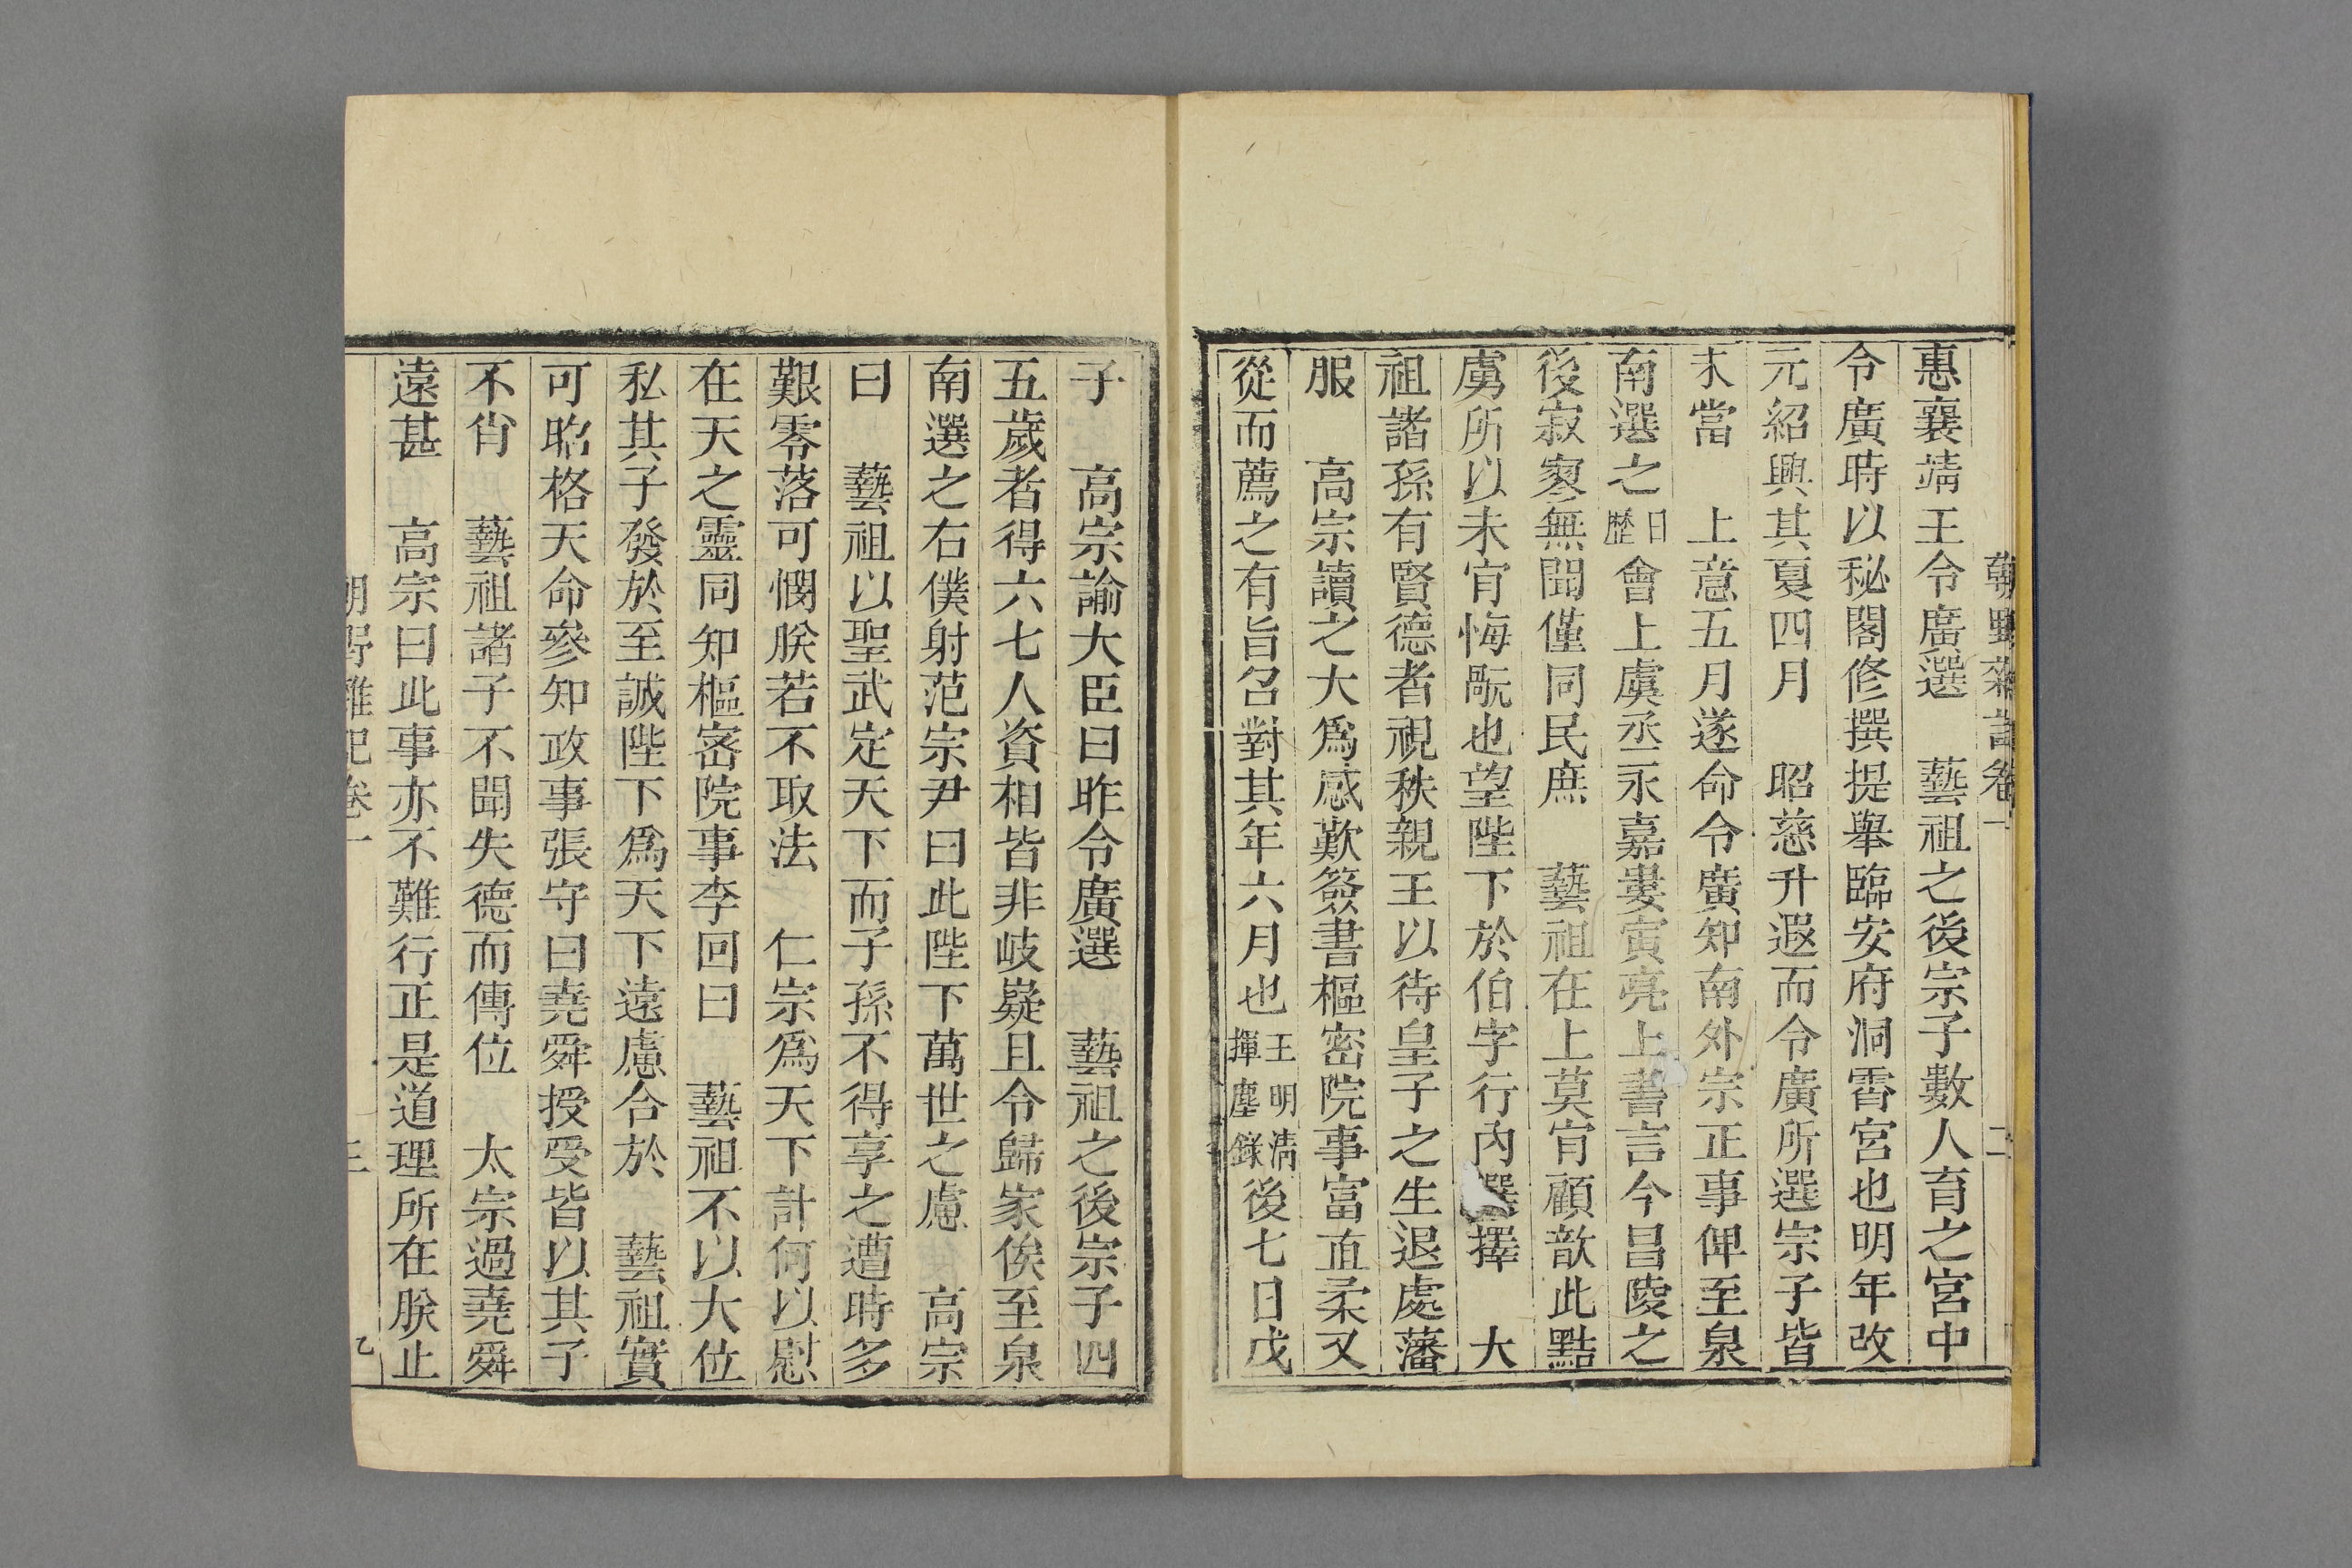 朝野雜記卷一 二
惠襄靖王令廣選 藝祖之後宗子數人育之宮中
令廣時以秘閣修撰提舉臨安府洞霄宮也明年改
元紹興其夏四月 昭慈升遐而令廣所選宗子皆
未當 上意五月遂命令廣知南外宗正事俾至泉
南選之日歷會上虞丞永嘉婁寅亮上書言今昌陵之
後寂寥無聞僅同民庶 藝祖在上莫肯顧歆此黠
虜所以未肯悔禍也望陛下於伯字行內選擇 大
祖諸孫有賢德者視秩親王以待皇子之生退處藩
服 高宗讀之大爲感歎簽書樞密院事富直柔又
從而薦之有旨召對其年六月也王明清揮塵錄後七日戊
子 高宗諭大臣曰昨令廣選 藝祖之後宗子四
五歲者得六七人資相皆非岐嶷且令歸家俟至泉
南選之右僕射范宗尹曰此陛下萬世之慮 高宗
曰 藝祖以聖武定天下而子孫不得享之遭時多
艱零落可憫朕若不取法 仁宗爲天下計何以慰
在天之靈同知樞密院事李回曰 藝祖不以大位
私其子發於至誠陛下爲天下遠慮合於 藝祖實
可昭格天命參知政事張守曰堯舜授受皆以其子
不肖 藝祖諸子不聞失德而傳位 太宗過堯舜
遠甚 高宗曰此事亦不難行正是道理所在朕止
朝野雜記卷一 三 乙